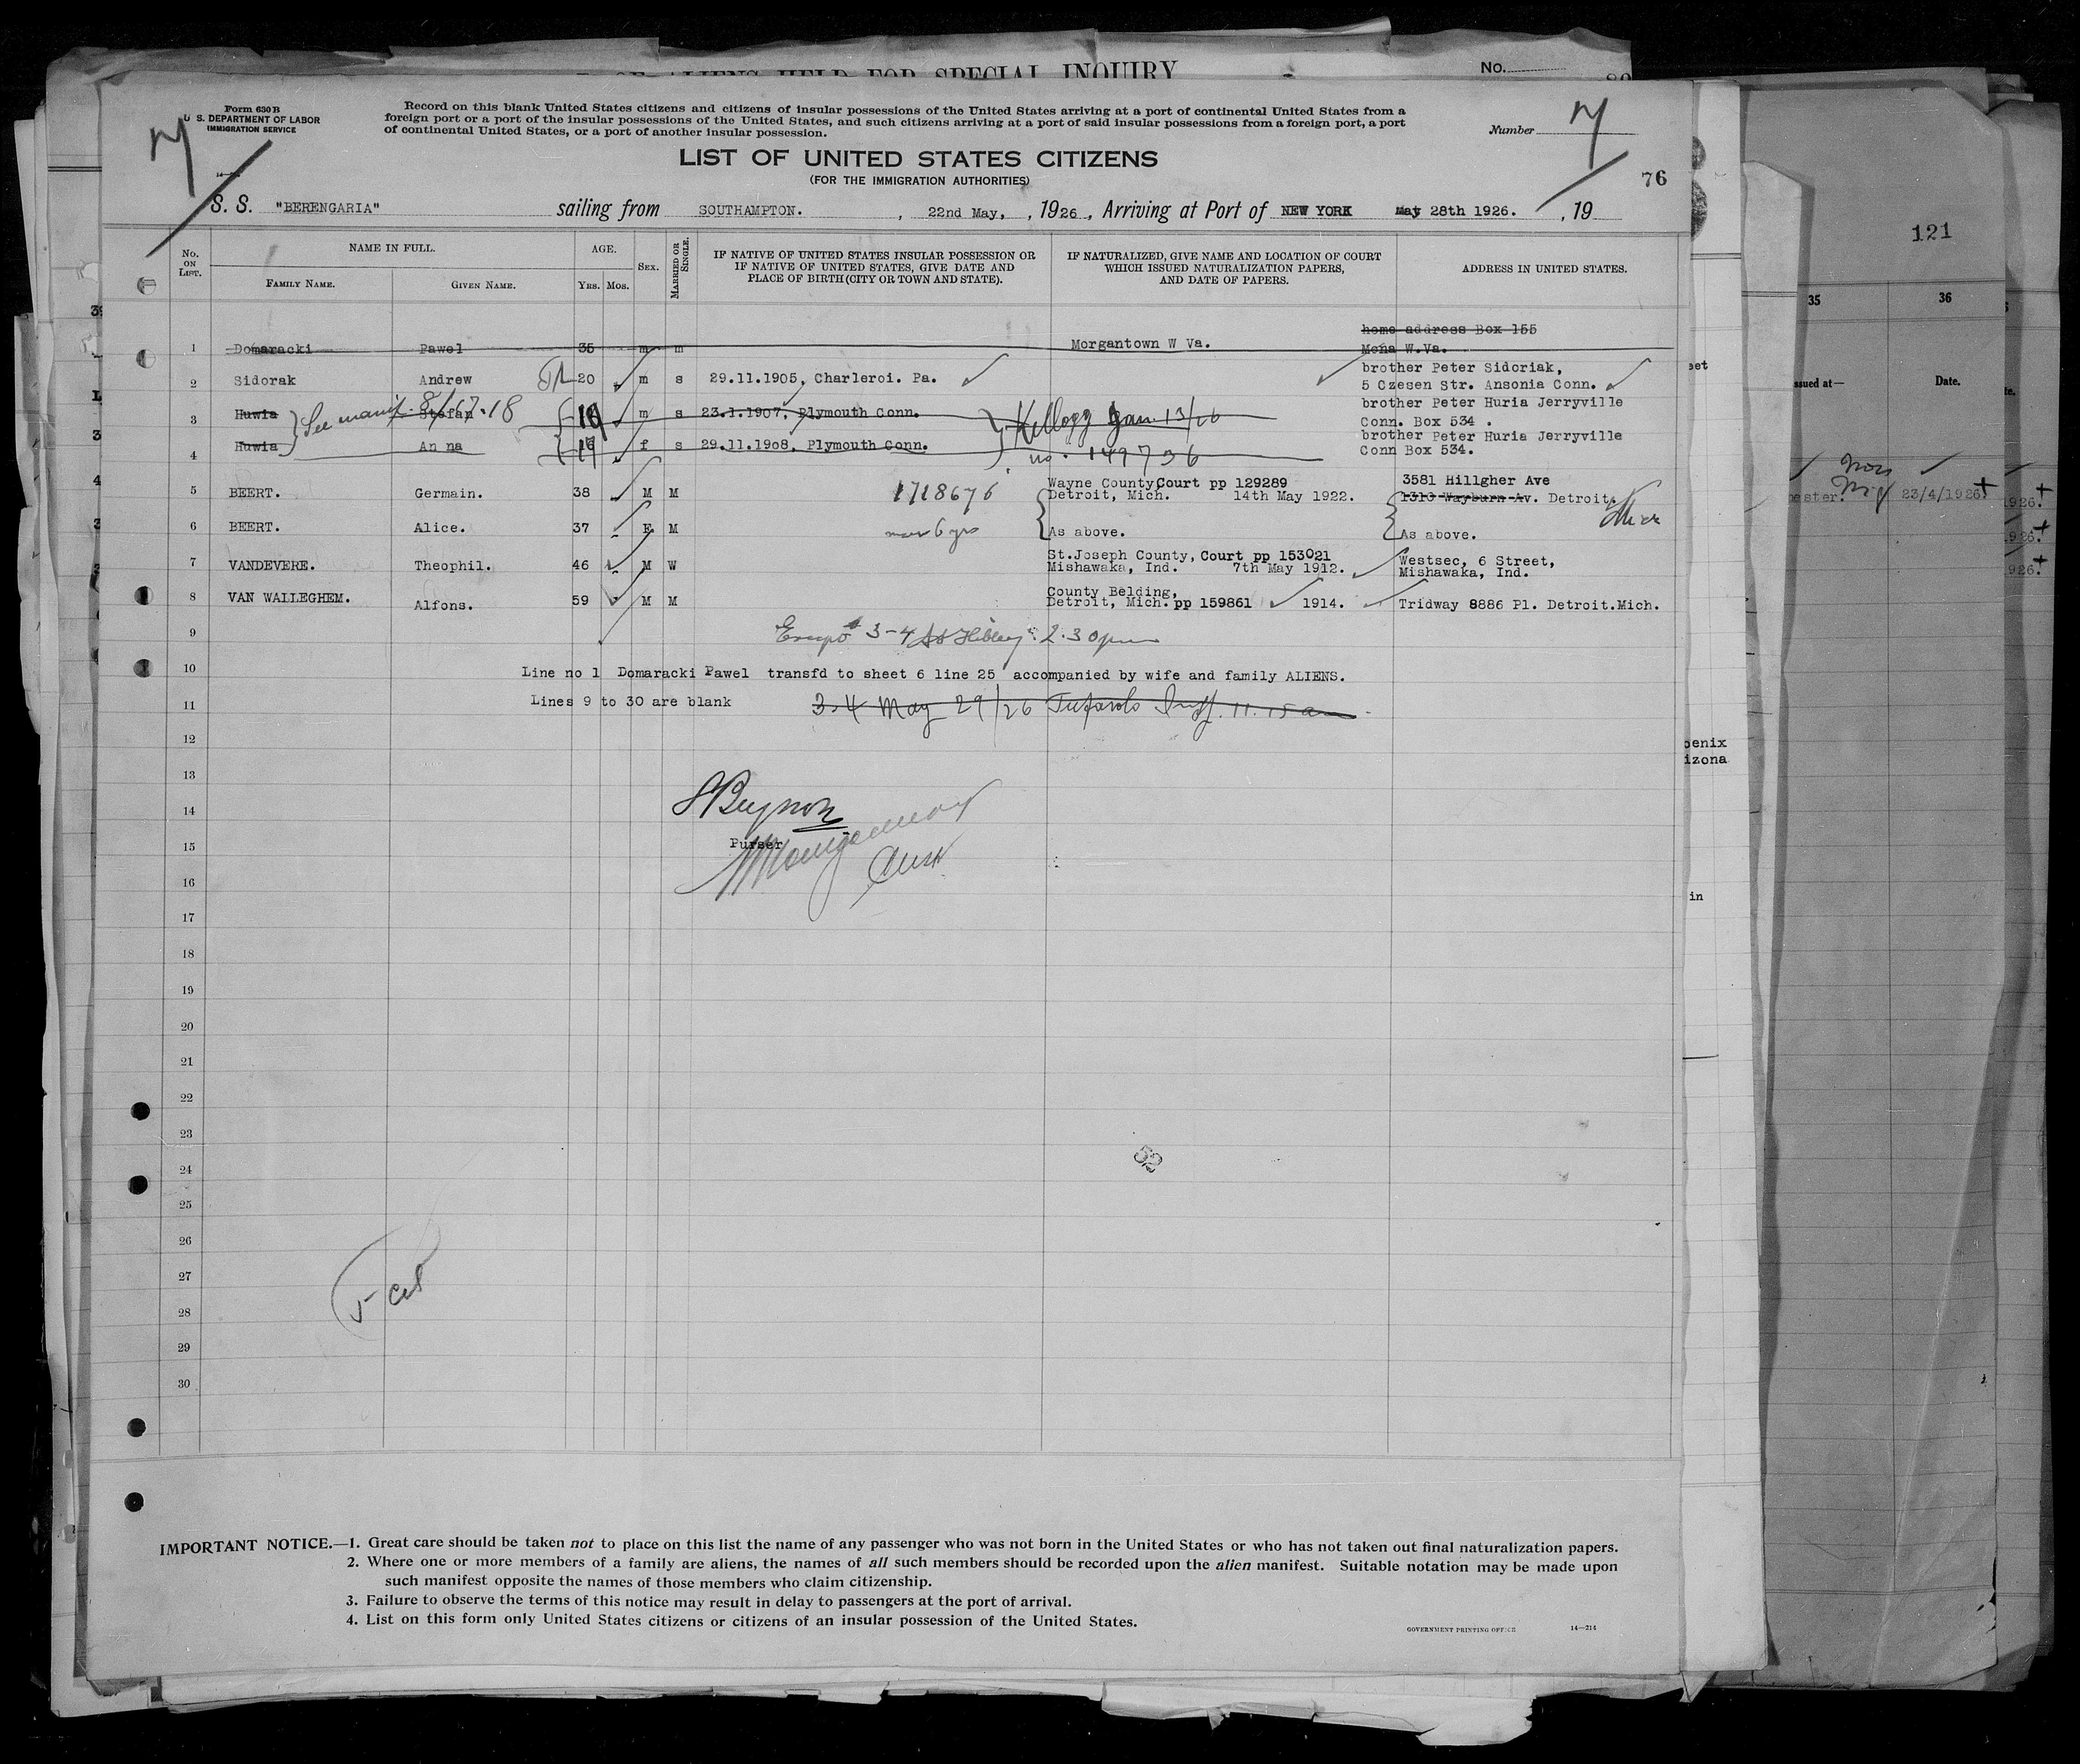 OF ALIENS HELD FOR SPECIAL INQUIRY
No.
Form 630 B
U. S. DEPARTMENT OF LABOR
IMMIGRATION SERVICE
Record on this blank United States citizens and citizens of insular possessions of the United States arriving at a port of continental United States from a
foreign port or a port of the insular possessions of the United States, and such citizens arriving at a port of said insular possessions from a foreign port, a port
of continental United States, or a port of another insular possession.
Number
LIST OF UNITED STATES CITIZENS
(FOR THE IMMIGRATION AUTHORITIES)
76
S. S. "BERENGARIA" sailing from SOUTHAMPTON. , 22nd May, , 1926 , Arriving at Port of NEW YORK May 28th 1926. , 19
No. ON LIST.
NAME IN FULL.
FAMILY NAME. GIVEN NAME.
AGE.
YRS. MOS.
SEX.
MARRIED OR SINGLE.
IF NATIVE OF UNITED STATES INSULAR POSSESSION OR
IF NATIVE OF UNITED STATES, GIVE DATE AND
PLACE OF BIRTH (CITY OR TOWN AND STATE).
IF NATURALIZED, GIVE NAME AND LOCATION OF COURT
WHICH ISSUED NATURALIZATION PAPERS,
AND DATE OF PAPERS.
ADDRESS IN UNITED STATES.
home address Box 155
1 Domaracki Pawel 35 m m Morgantown W Va. Mona W.Va.
brother Peter Sidoriak,
2 Sidorak Andrew 20 m s 29.11.1905, Charleroi. Pa. 5 Czesen Str. Ansonia Conn.
brother Peter Huria Jerryville
3 Huwia Stefan 18 m s 23.1.1907, Plymouth Conn. Kellogg Jan 13/26 Conn. Box 534 .
See manif. 8/17.18
brother Peter Huria Jerryville
4 Huwia Anna 17 f s 29.11.1908, Plymouth Conn. no. 149736 Conn Box 534.
Wayne County, Court pp 129289 3581 Hillgher Ave
5 BEERT. Germain. 38 M M 1718676 Detroit, Mich. 14th May 1922. 1310 Wayburn Av. Detroit. Mich
6 BEERT. Alice. 37 F M mar 6 yrs As above. As above.
St.Joseph County, Court pp 153021 Westsec, 6 Street,
7 VANDEVERE. Theophil. 46 M W Mishawaka, Ind. 7th May 1912. Mishawaka, Ind.
County Belding,
8 VAN WALLEGHEM. Alfons. 59 M M Detroit, Mich. pp 159861 1914. Tridway 8886 Pl. Detroit.Mich.
9 3-4 2.30pm
10 Line no 1 Domaracki Pawel transfd to sheet 6 line 25 accompanied by wife and family ALIENS.
11 Lines 9 to 30 are blank 3-4 May 29/26 11.15 am
12
13
14
Purser
15
16
17
18
19
20
21
22
23
52
24
25
26
27
28
29
30
IMPORTANT NOTICE.—1. Great care should be taken not to place on this list the name of any passenger who was not born in the United States or who has not taken out final naturalization papers.
2. Where one or more members of a family are aliens, the names of all such members should be recorded upon the alien manifest. Suitable notation may be made upon
such manifest opposite the names of those members who claim citizenship.
3. Failure to observe the terms of this notice may result in delay to passengers at the port of arrival.
4. List on this form only United States citizens or citizens of an insular possession of the United States.
GOVERNMENT PRINTING OFFICE 14—214
121
35 36
Date.
23/4/1926